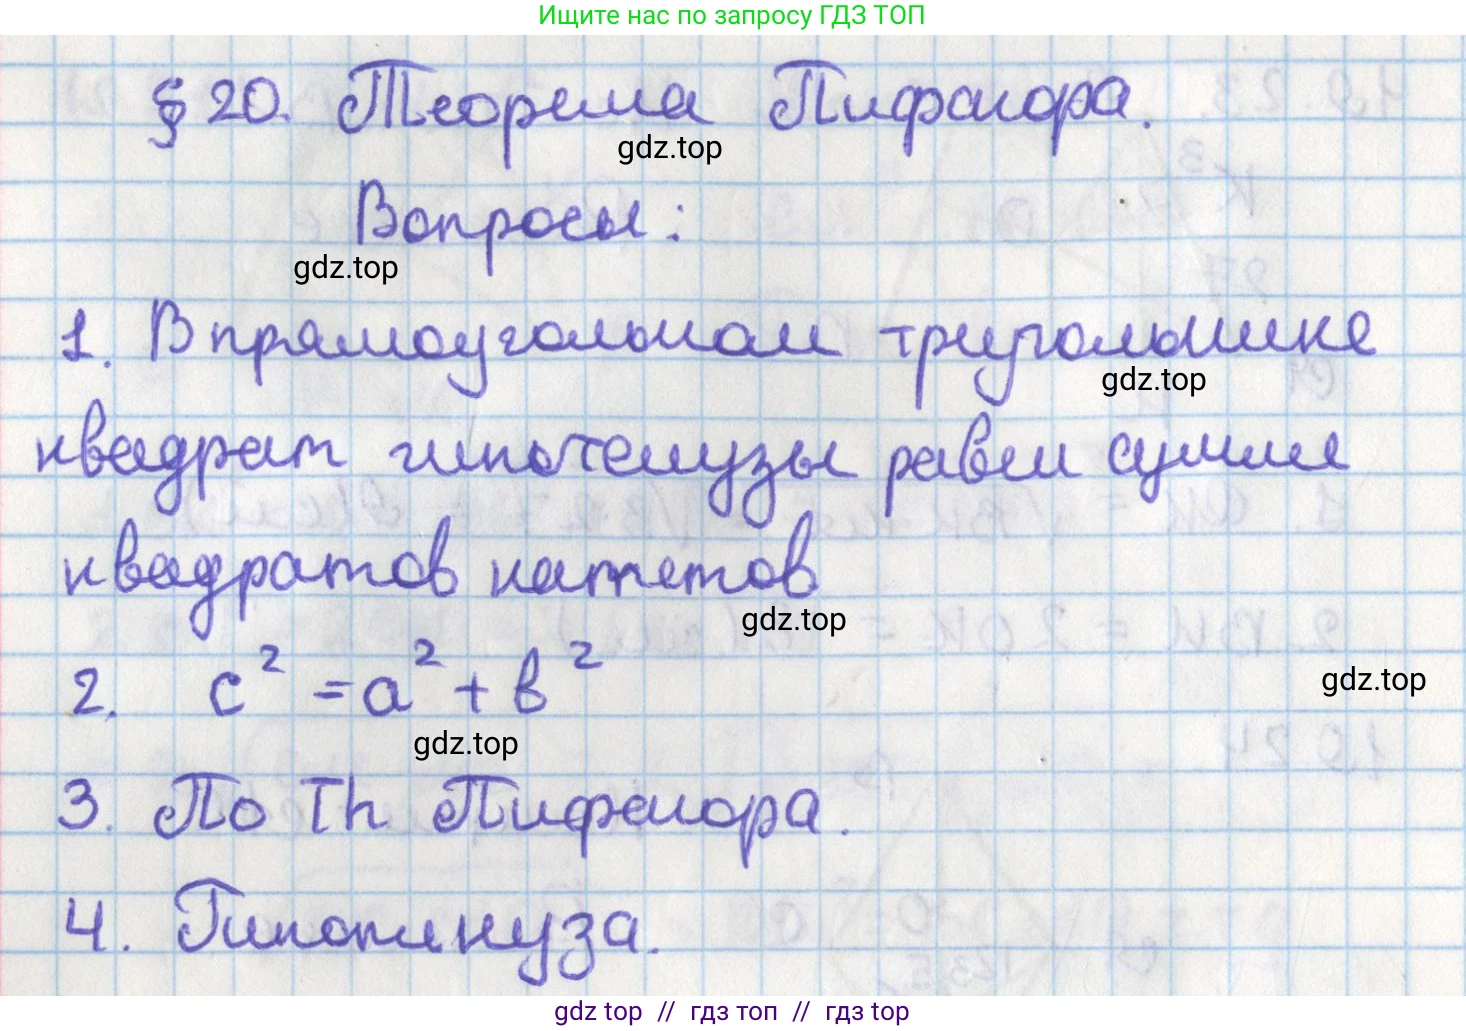 Ищите нас по запросу ГДЗ ТОП
§ 20. Теорема Пифагора.
gdz.top
Вопросы:
gdz.top
1. В прямоугольном треугольнике
gdz.top
квадрат гипотенузы равен сумме
квадратов катетов
gdz.top
2. c² = a² + в²
gdz.top
gdz.top
3. По Th Пифагора.
4. Гипотенуза.
gdz top // гдз топ // гдз top